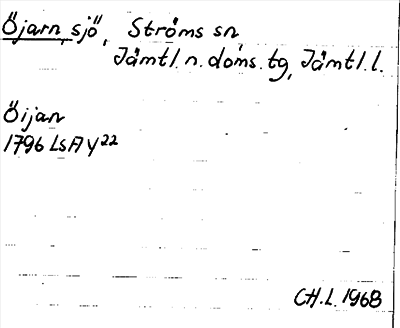 Öjarn, sjö, Ströms sn
Jämtl. n. doms. tg, Jämtl. l.
Öijan
1796 LsA Y22
CH.L. 1968